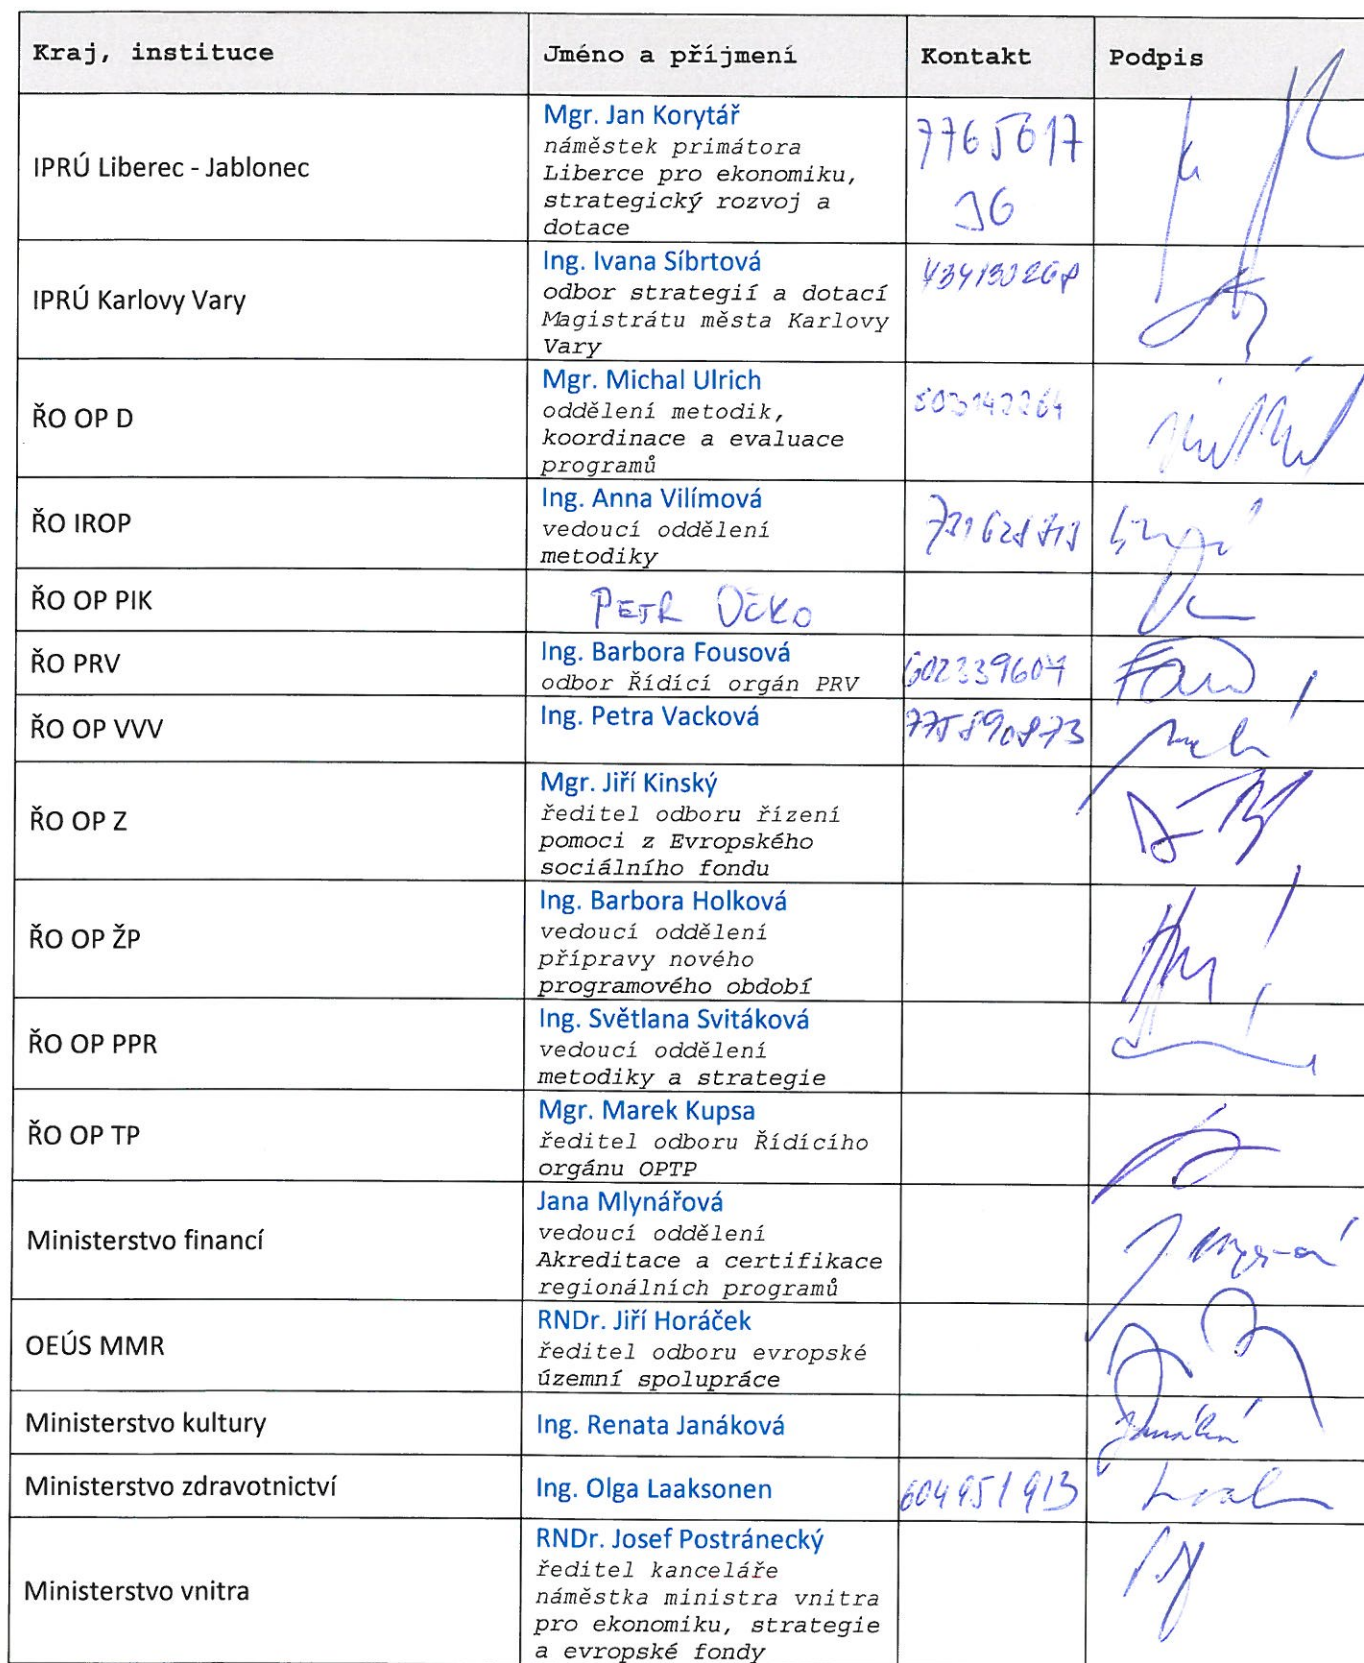 Kraj, instituce
Jméno a příjmení
Kontakt
Podpis
IPRÚ Liberec - Jablonec
Mgr. Jan Korytář
náměstek primátora
Liberce pro ekonomiku,
strategický rozvoj a
dotace
IPRÚ Karlovy Vary
Ing. Ivana Síbrtová
odbor strategií a dotací
Magistrátu města Karlovy
Vary
ŘO OP D
Mgr. Michal Ulrich
oddělení metodik,
koordinace a evaluace
programů
ŘO IROP
Ing. Anna Vilímová
vedoucí oddělení
metodiky
ŘO OP PIK
PETR OČKO
ŘO PRV
Ing. Barbora Fousová
odbor Řídící orgán PRV
602339607
ŘO OP VVV
Ing. Petra Vacková
775890873
ŘO OP Z
Mgr. Jiří Kinský
ředitel odboru řízení
pomoci z Evropského
sociálního fondu
ŘO OP ŽP
Ing. Barbora Holková
vedoucí oddělení
přípravy nového
programového období
ŘO OP PPR
Ing. Světlana Svitáková
vedoucí oddělení
metodiky a strategie
ŘO OP TP
Mgr. Marek Kupsa
ředitel odboru Řídícího
orgánu OPTP
Ministerstvo financí
Jana Mlynářová
vedoucí oddělení
Akreditace a certifikace
regionálních programů
OEÚS MMR
RNDr. Jiří Horáček
ředitel odboru evropské
územní spolupráce
Ministerstvo kultury
Ing. Renata Janáková
Ministerstvo zdravotnictví
Ing. Olga Laaksonen
604951913
Ministerstvo vnitra
RNDr. Josef Postránecký
ředitel kanceláře
náměstka ministra vnitra
pro ekonomiku, strategie
a evropské fondy